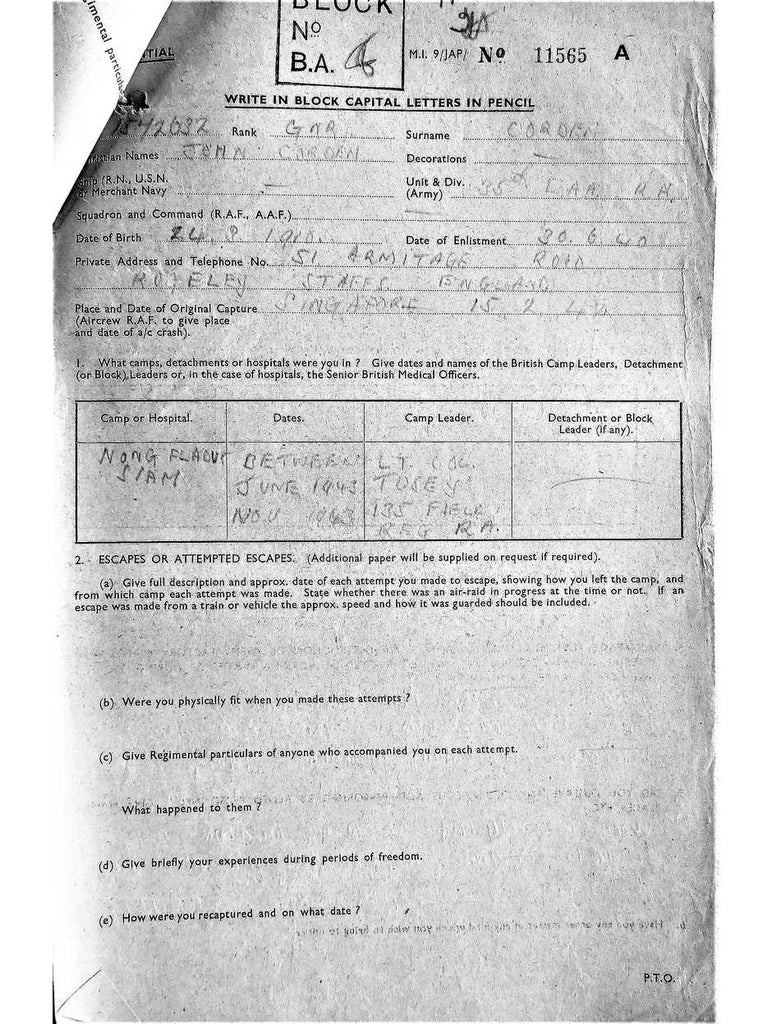 gimental particul
NTIAL
BLOCK
No
B.A. 6
M.I. 9/JAP/ No 11565 A
WRITE IN BLOCK CAPITAL LETTERS IN PENCIL
Rank GNR Surname CORDEN
Christian Names JOHN CORDEN Decorations —
Ship (R.N., U.S.N. or Merchant Navy — Unit & Div. (Army) 35th LAA R.A.
Squadron and Command (R.A.F., A.A.F.) —
Date of Birth 24. 8. 1910. Date of Enlistment 30. 6. 40
Private Address and Telephone No. 51 ARMITAGE ROAD
RUGELEY STAFFS ENGLAND
Place and Date of Original Capture SINGAPORE 15. 2.
(Aircrew R.A.F. to give place
and date of a/c crash).
1. What camps, detachments or hospitals were you in ? Give dates and names of the British Camp Leaders, Detachment
(or Block) Leaders or, in the case of hospitals, the Senior British Medical Officers.
Camp or Hospital. Dates. Camp Leader. Detachment or Block
Leader (if any).
NONG PLADUK BETWEEN LT. COL.
SIAM JUNE 1943 TOSEY
NOV 1943 135 FIELD
REG R.A.
2. ESCAPES OR ATTEMPTED ESCAPES. (Additional paper will be supplied on request if required).
(a) Give full description and approx. date of each attempt you made to escape, showing how you left the camp, and
from which camp each attempt was made. State whether there was an air-raid in progress at the time or not. If an
escape was made from a train or vehicle the approx. speed and how it was guarded should be included.
(b) Were you physically fit when you made these attempts ?
(c) Give Regimental particulars of anyone who accompanied you on each attempt.
What happened to them ?
(d) Give briefly your experiences during periods of freedom.
(e) How were you recaptured and on what date ?
P.T.O.